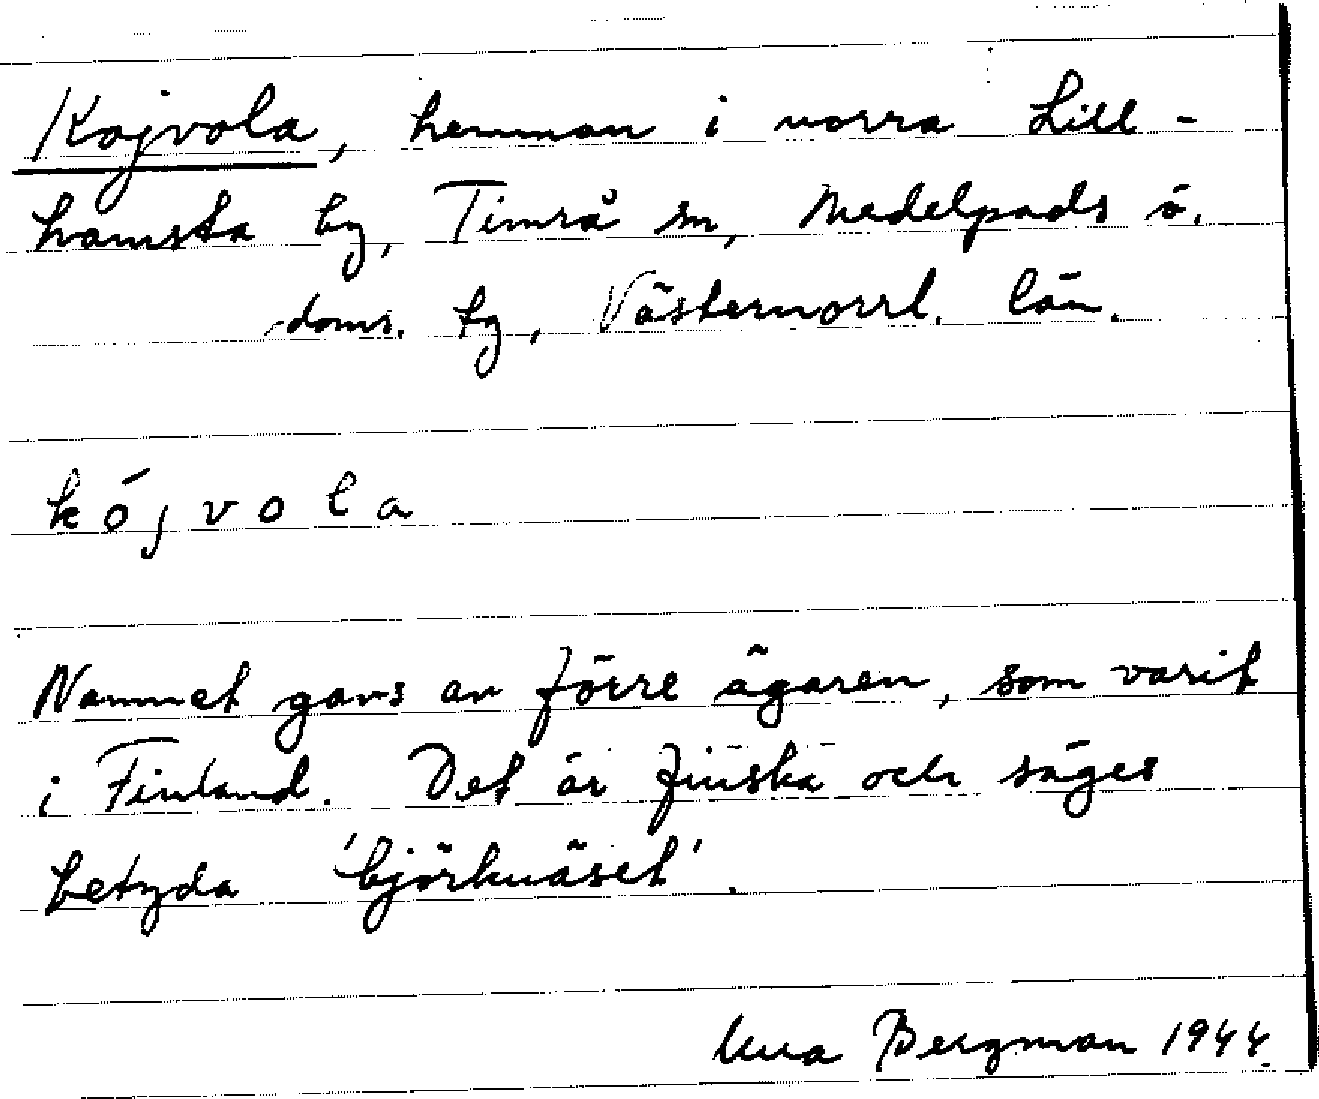 Kojvola, hemman i norra Lill-
hamsta by, Timrå sn, Medelpads ö.
doms. tg, Västernorrl. län.
kójvola
Namnet gavs av förre ägaren, som varit
i Finland. Det är finska och säges
betyda 'björknäset'.
Bergman 1944.